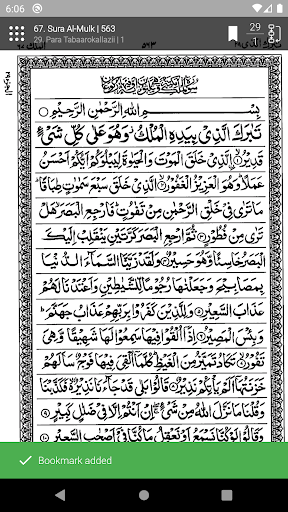 6:06
67. Sura Al-Mulk | 563
29. Para Tabaarokallazii | 1
29
1
تبٰرك الذی ٢٩
٥٦٣
الملك ٦٧
بِسْمِ اللهِ الرَّحْمٰنِ الرَّحِيْمِ
تَبٰرَكَ الَّذِيْ بِيَدِهِ الْمُلْكُ وَهُوَ عَلٰى كُلِّ شَيْءٍ
قَدِيْرُ ۙ الَّذِيْ خَلَقَ الْمَوْتَ وَالْحَيٰوةَ لِيَبْلُوَكُمْ اَيُّكُمْ اَحْسَنُ
عَمَلًا وَهُوَ الْعَزِيْزُ الْغَفُوْرُ ۙ الَّذِيْ خَلَقَ سَبْعَ سَمٰوٰتٍ طِبَاقًا
مَا تَرٰى فِيْ خَلْقِ الرَّحْمٰنِ مِنْ تَفٰوُتٍ فَارْجِعِ الْبَصَرَ هَلْ
تَرٰى مِنْ فُطُوْرٍ ثُمَّ ارْجِعِ الْبَصَرَ كَرَّتَيْنِ يَنْقَلِبْ اِلَيْكَ
الْبَصَرُ خَاسِئًا وَهُوَ حَسِيْرٌ وَلَقَدْ زَيَّنَّا السَّمَآءَ الدُّنْيَا
بِمَصَابِيْحَ وَجَعَلْنٰهَا رُجُوْمًا لِّلشَّيٰطِيْنِ وَاَعْتَدْنَا لَهُمْ
عَذَابَ السَّعِيْرِ وَلِلَّذِيْنَ كَفَرُوْا بِرَبِّهِمْ عَذَابُ جَهَنَّمَ
وَبِئْسَ الْمَصِيْرُ اِذَآ اُلْقُوْا فِيْهَا سَمِعُوْا لَهَا شَهِيْقًا وَّهِيَ
تَفُوْرُ تَكَادُ تَمَيَّزُ مِنَ الْغَيْظِ كُلَّمَآ اُلْقِيَ فِيْهَا فَوْجٌ سَاَلَهُمْ
خَزَنَتُهَآ اَلَمْ يَاْتِكُمْ نَذِيْرٌ قَالُوْا بَلٰى قَدْ جَآءَنَا نَذِيْرٌ فَكَذَّبْنَا
وَقُلْنَا مَا نَزَّلَ اللهُ مِنْ شَيْءٍ اِنْ اَنْتُمْ اِلَّا فِيْ ضَلٰلٍ كَبِيْرٍ
وَقَالُوْا لَوْ كُنَّا نَسْمَعُ اَوْ نَعْقِلُ مَا كُنَّا فِيْٓ اَصْحٰبِ السَّعِيْرِ
Bookmark added